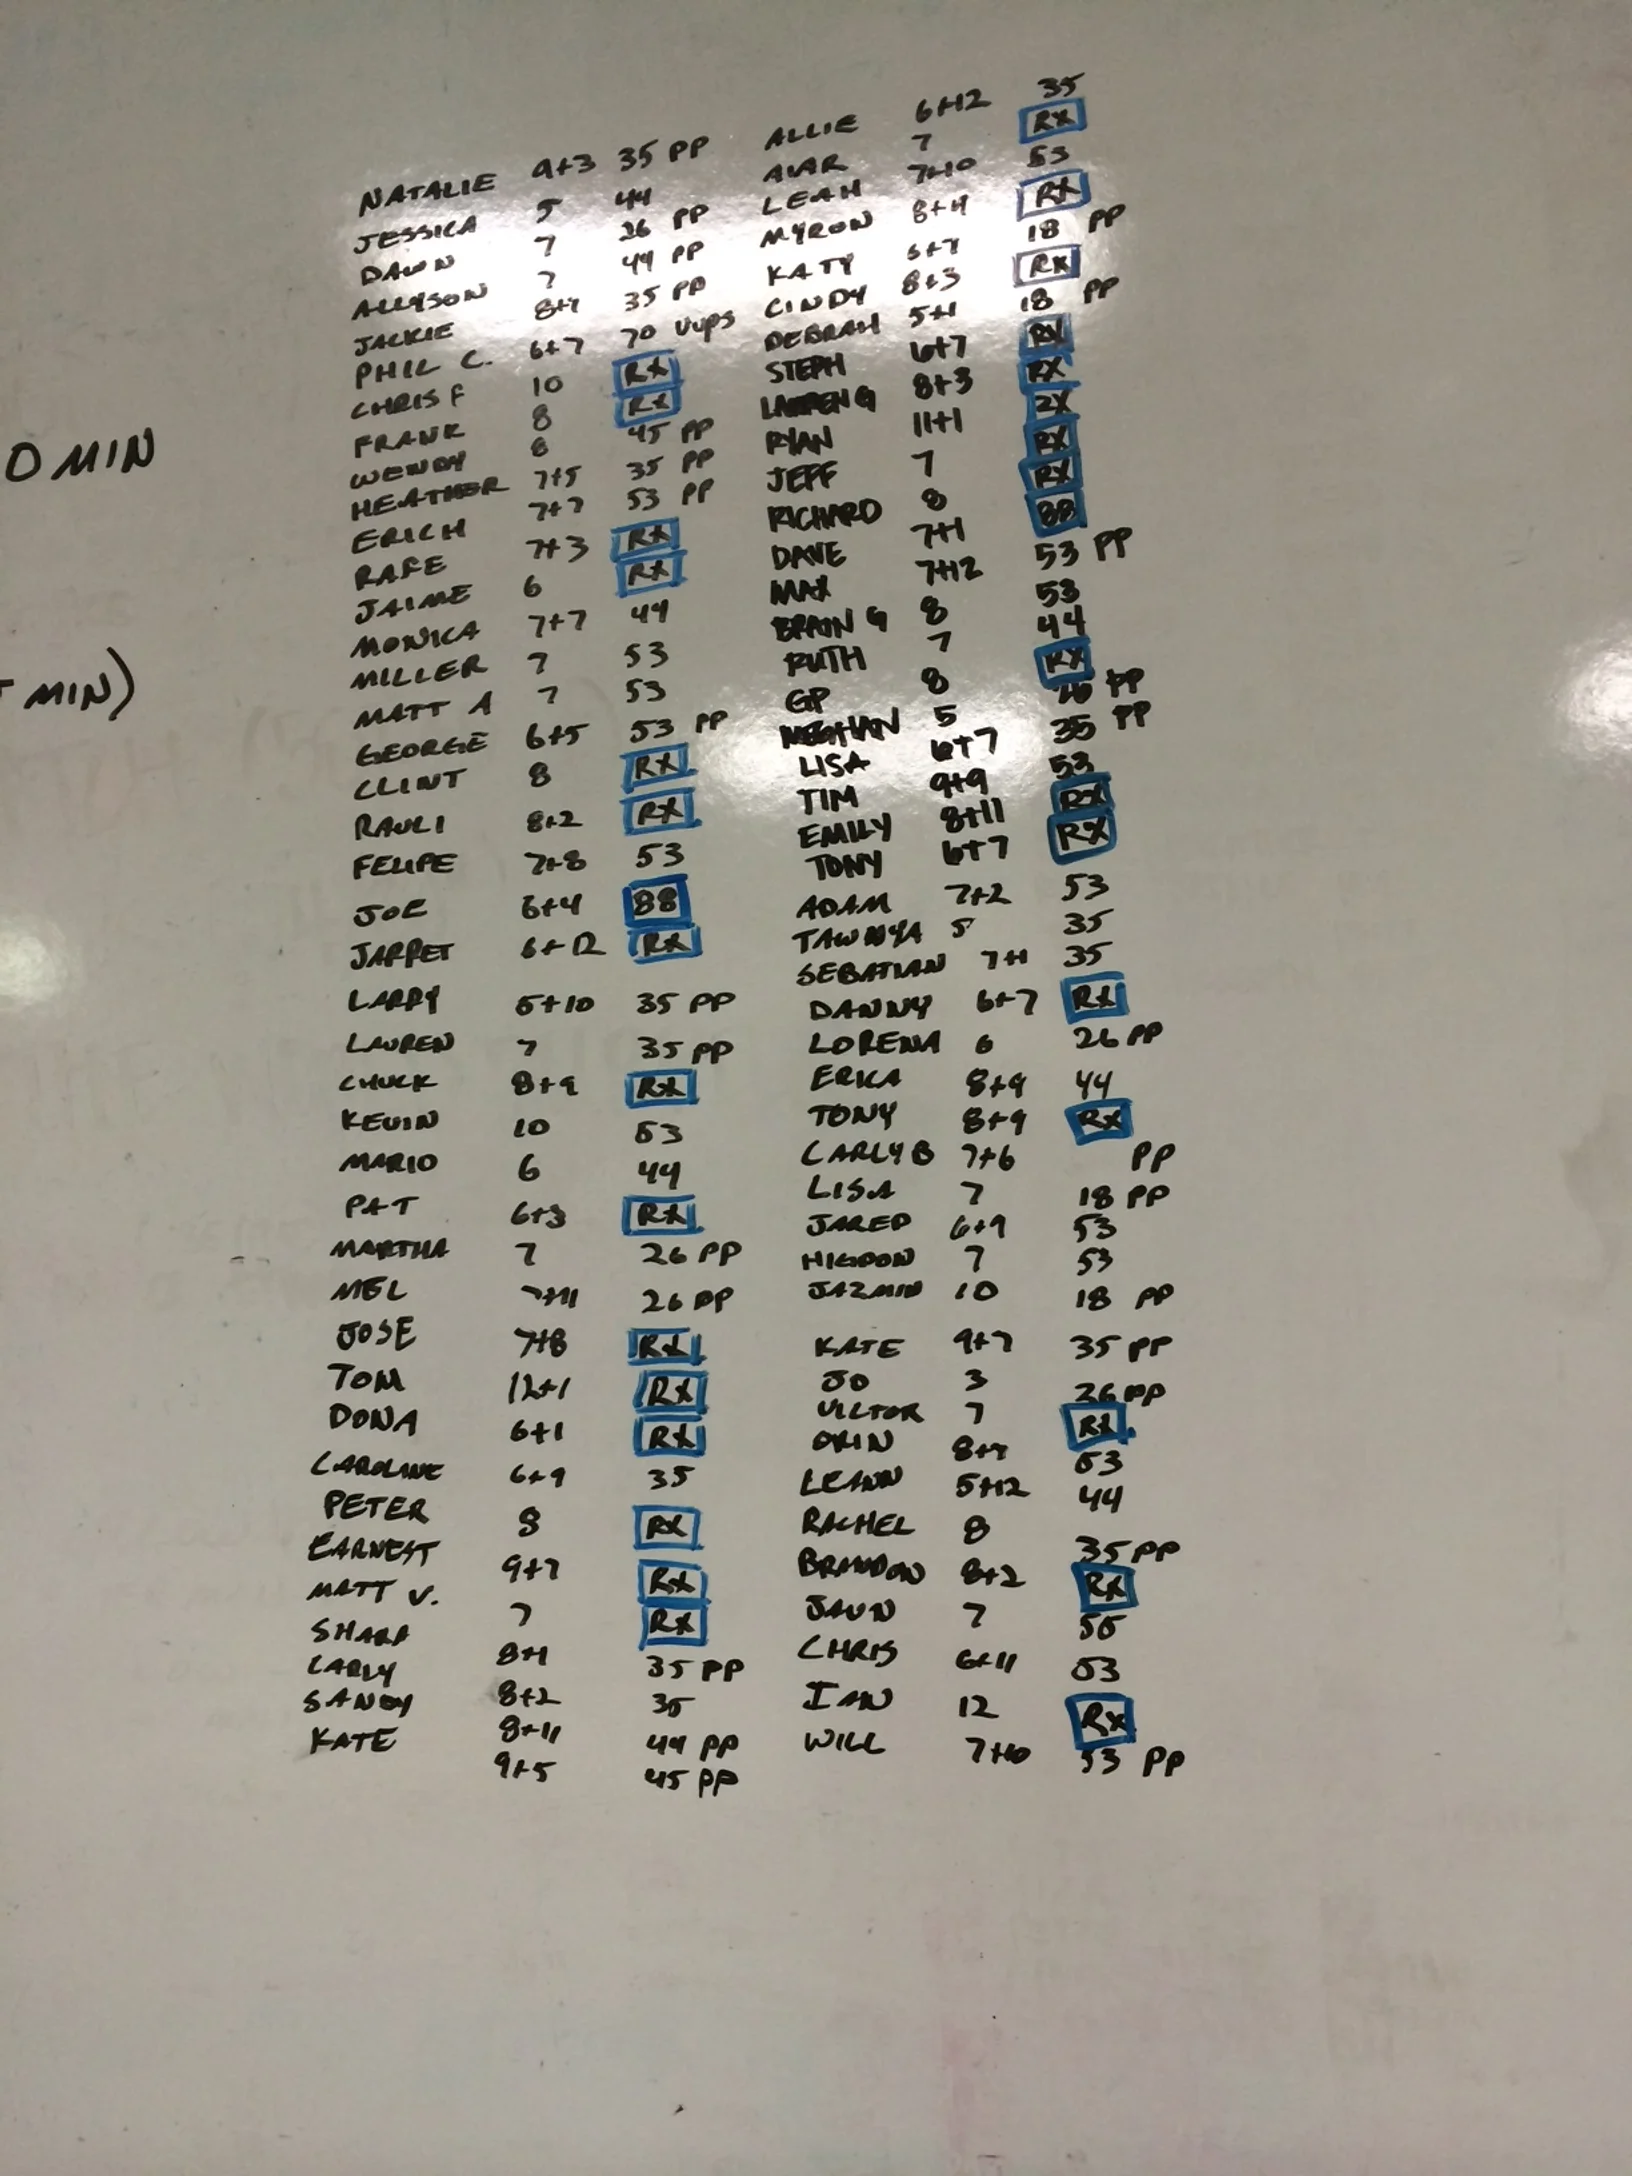 O MIN
MIN)
NATALIE 9+3 35 PP
JESSICA 5 44
DAWN 7 26 PP
ALLYSON 7 44 PP
JACKIE 35 PP
PHIL C. 6+7 70 VUPS
CHRIS F 10 RX
FRANK 8 RX
WENDY 8 45 PP
HEATHER 7+5 35 PP
ERICH 7+7 53 PP
RAFE 7+3 RX
JAIME 6 RX
MONICA 7+7 44
MILLER 7 53
MATT A 7 53
GEORGE 6+5 53 PP
CLINT 8 RX
RAULI 8+2 RX
FELIPE 7+8 53
JOE 6+4 88
JARRET 6+12 RX
LARRY 5+10 35 PP
LAUREN 7 35 PP
CHUCK 8+9 RX
KEVIN 10 53
MARIO 6 44
PAT 6+3 RX
MARTHA 7 26 PP
MEL 7+11 26 PP
JOSE 7+8 RX
TOM 12+1 RX
DONA 6+1 RX
CAROLINE 6+9 35
PETER 8 RX
EARNEST 9+7 RX
MATT V. 7 RX
SHARP 8+1 35 PP
CARLY 8+2 35
SANDY 8+11 44 PP
KATE 9+5 45 PP
ALLIE 6+12 35
7 RX
LEAH 7+10 53
MYRON RX
KATY 18 PP
CINDY 8+3 RX
DEBRAH 5+1 18 PP
STEPH 6+7 RX
LAUREN G 8+3 RX
RYAN 11+1
JEFF 7 RX
RICHARD 8 RX
DAVE 7+1 88
MAX 7+12 53 PP
BRAIN G 8 53
RUTH 7 44
GP 8 RX
MEGHAN 5 26 PP
LISA 6+7 35 PP
TIM 9+9 53
EMILY 8+11 RX
TONY 6+7 RX
ADAM 7+2 53
TAWNYA 5 35
SEBATIAN 7+1 35
DANNY 6+7 RX
LORENA 6 26 PP
ERIKA 8+9 44
TONY 8+9 RX
CARLY B 7+6 PP
LISA 7 18 PP
JARED 6+9 53
HIGDON 7 53
JAZMIN 10 18 PP
KATE 9+7 35 PP
JO 3 26 PP
VICTOR 7 RX
ORIN 53
LEANN 5+12 44
RACHEL 8 35 PP
BRANDON 8+2 RX
JAUN 7 55
CHRIS 6+11 53
IAN 12 RX
WILL 7+10 53 PP